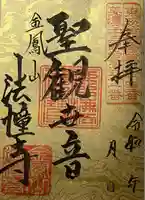 奉拝
令和 年 月 日
聖観世音
金鳳山
法幢寺